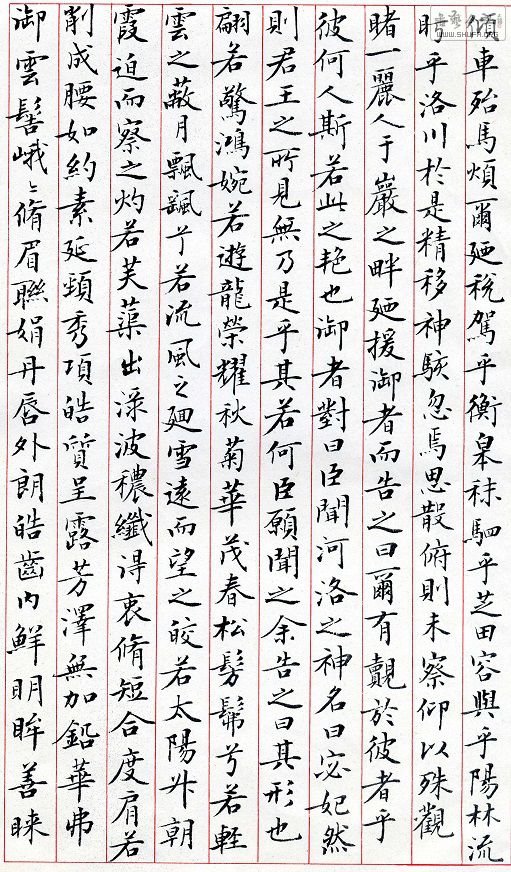 傾車殆馬煩爾廼稅駕乎衡皋秣駟乎芝田容與乎陽林流
眄乎洛川於是精移神駭忽焉思散俯則未察仰以殊觀
睹一麗人于巖之畔廼援御者而告之曰爾有覿於彼者乎
彼何人斯若此之艳也御者對曰臣聞河洛之神名曰宓妃然
則君王之所見無乃是乎其若何臣願聞之余告之曰其形也
翩若驚鴻婉若遊龍榮耀秋菊華茂春松髣髴兮若輕
雲之蔽月飄颻兮若流風之廻雪遠而望之皎若太陽升朝
霞迫而察之灼若芙蕖出渌波穠纖得衷脩短合度肩若
削成腰如約素延頸秀項皓質呈露芳澤無加鉛華弗
御雲髻峨〻脩眉聯娟丹唇外朗皓齒內鮮明眸善睞
WWW.SHUFA.ORG